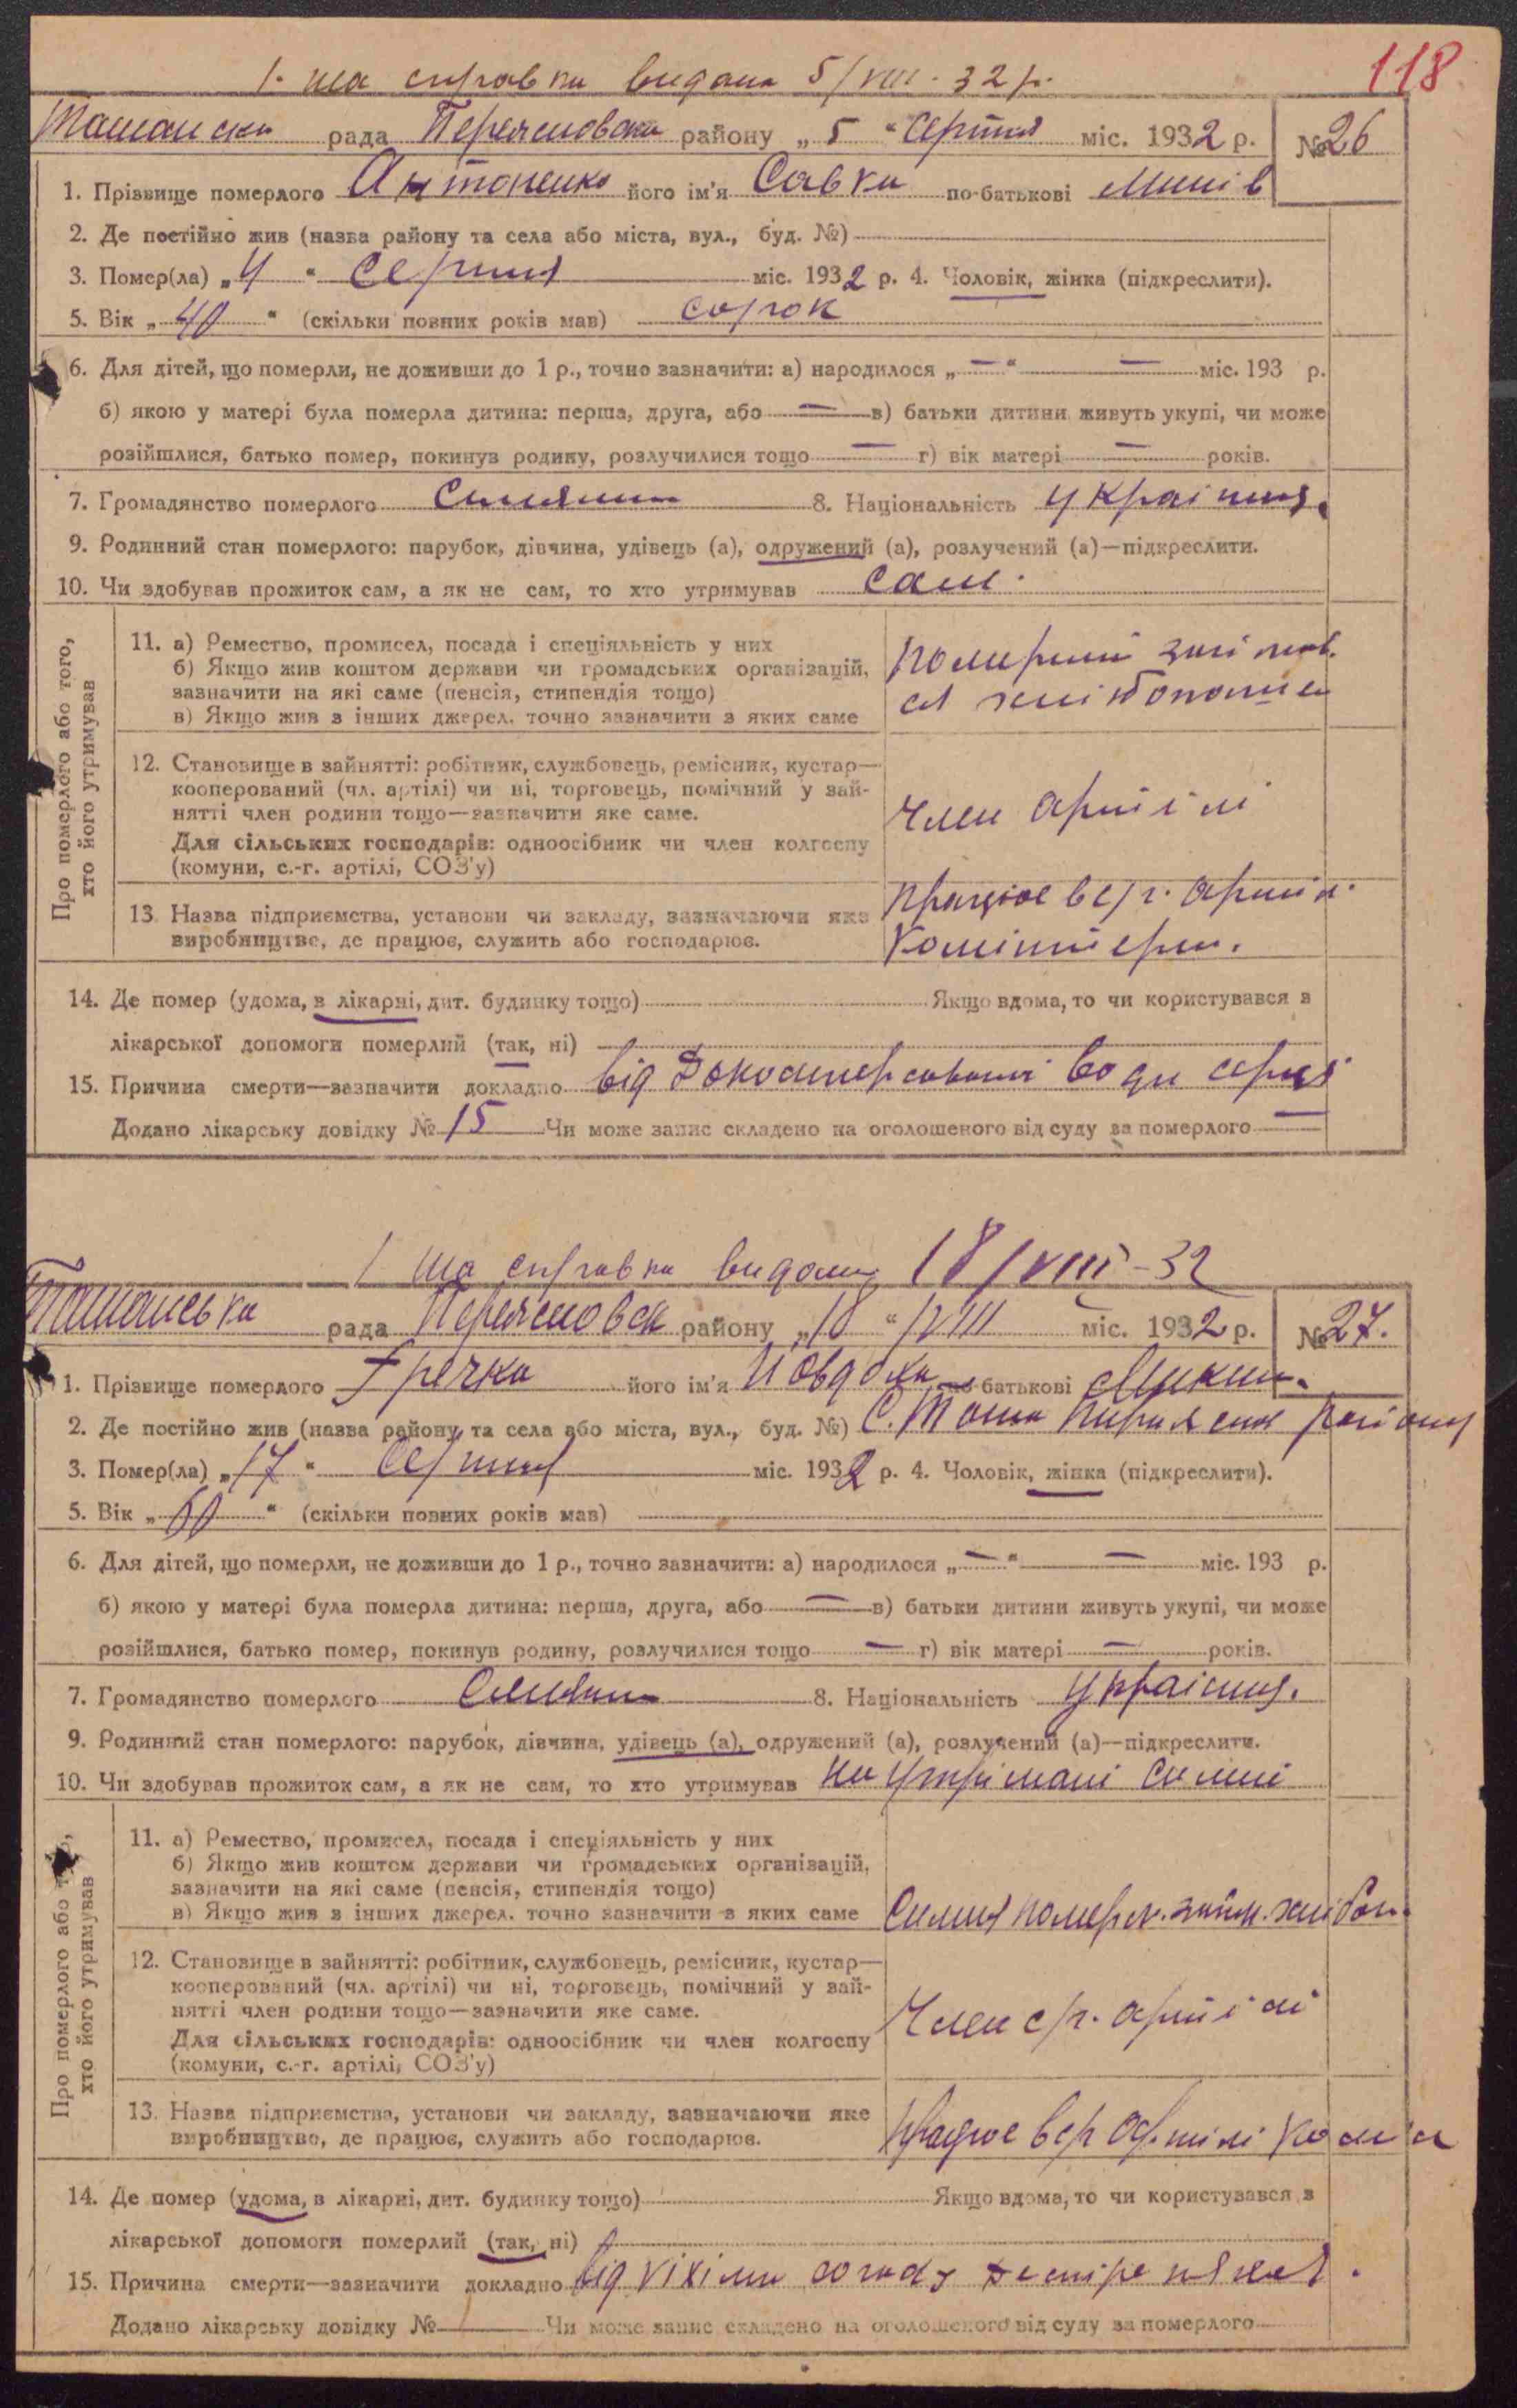 118
1. ша справка видана 5/VIII-32 р.
Ташанська рада Переяславськ району „5“ серпня міс. 1932 р. №26
1. Прізвище померлого Антоненко його ім'я Савка по-батькові
2. Де постійно жив (назва району та села або міста, вул., буд. №)
3. Помер(ла) „4“ серпня міс. 1932 р. 4. Чоловік, жінка (підкреслити).
5. Вік „40“ (скільки повних років мав) сорок
6. Для дітей, що померли, не доживши до 1 р., точно зазначити: а) народилося „—“ — міс. 193 р.
б) якою у матері була померла дитина: перша, друга, або — в) батьки дитини живуть укупі, чи може
розійшлися, батько помер, покинув родину, розлучилися тощо — г) вік матері — років.
7. Громадянство померлого 8. Національність україния.
9. Родинний стан померлого: парубок, дівчина, удівець (а), одружений (а), розлучений (а)—підкреслити.
10. Чи здобував прожиток сам, а як не сам, то хто утримував сам.
Про померлого або того,
хто його утримував
11. а) Ремество, промисел, посада і спеціяльність у них
б) Якщо жив коштом держави чи громадських організацій,
зазначити на які саме (пенсія, стипендія тощо)
в) Якщо жив з інших джерел, точно зазначити з яких саме
померший займав.
ся
12. Становище в зайнятті: робітник, службовець, ремісник, кустар—
кооперований (чл. артілі) чи ні, торговець, помічний у зай-
нятті член родини тощо—зазначити яке саме.
Для сільських господарів: одноосібник чи член колгоспу
(комуни, с.-г. артілі, СОЗ'у)
член артілі
13. Назва підприємства, установи чи закладу, зазначаючи яке
виробництво, де працює, служить або господарює.
працює в с/г. артіл.
Комінтерн.
14. Де помер (удома, в лікарні, дит. будинку тощо) Якщо вдома, то чи користувався з
лікарської допомоги померлий (так, ні)
15. Причина смерти—зазначити докладно від
Додано лікарську довідку № 15 Чи може запис складено на оголошеного від суду за померлого —
1 ша справка видана 18/VIII-32
Ташанська рада Переяславськ району „18“ /VIII міс. 1932 р. №27.
1. Прізвище померлого Гречка його ім'я Йовдоха по батькові Микит.
2. Де постійно жив (назва району та села або міста, вул., буд. №) С. Ташань району
3. Помер(ла) „17“ серпня міс. 1932 р. 4. Чоловік, жінка (підкреслити).
5. Вік „60“ (скільки повних років мав)
6. Для дітей, що померли, не доживши до 1 р., точно зазначити: а) народилося „—“ — міс. 193 р.
б) якою у матері була померла дитина: перша, друга, або — в) батьки дитини живуть укупі, чи може
розійшлися, батько помер, покинув родину, розлучилися тощо — г) вік матері — років.
7. Громадянство померлого 8. Національність україния.
9. Родинний стан померлого: парубок, дівчина, удівець (а), одружений (а), розлучений (а)—підкреслити.
10. Чи здобував прожиток сам, а як не сам, то хто утримував на утрімані симьі
Про померлого або того,
хто його утримував
11. а) Ремество, промисел, посада і спеціяльність у них
б) Якщо жив коштом держави чи громадських організацій,
зазначити на які саме (пенсія, стипендія тощо)
в) Якщо жив з інших джерел, точно зазначити з яких саме
Симья помер. займ. хлібоп.
12. Становище в зайнятті: робітник, службовець, ремісник, кустар—
кооперований (чл. артілі) чи ні, торговець, помічний у зай-
нятті член родини тощо—зазначити яке саме.
Для сільських господарів: одноосібник чи член колгоспу
(комуни, с.-г. артілі, СОЗ'у)
член с/г. артілі
13. Назва підприємства, установи чи закладу, зазначаючи яке
виробництво, де працює, служить або господарює.
Працює в с/г артілі
14. Де помер (удома, в лікарні, дит. будинку тощо) Якщо вдома, то чи користувався з
лікарської допомоги померлий (так, ні)
15. Причина смерти—зазначити докладно від
Додано лікарську довідку № Чи може запис складено на оголошеного від суду за померлого